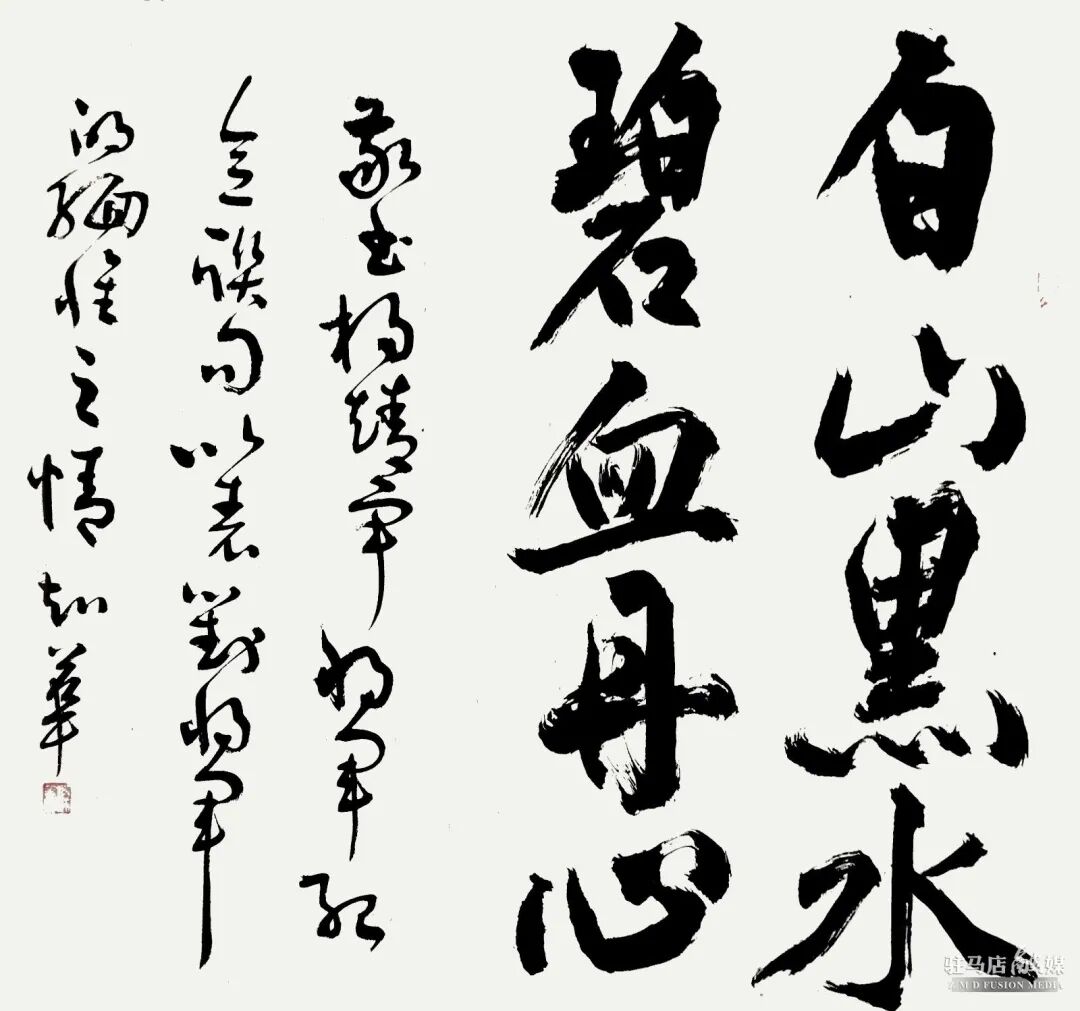 白山黑水
碧血丹心
敬书杨靖宇将军纪
念联句以表對将军
的缅怀之情 知華
驻马店融媒
ZMD FUSION MEDIA